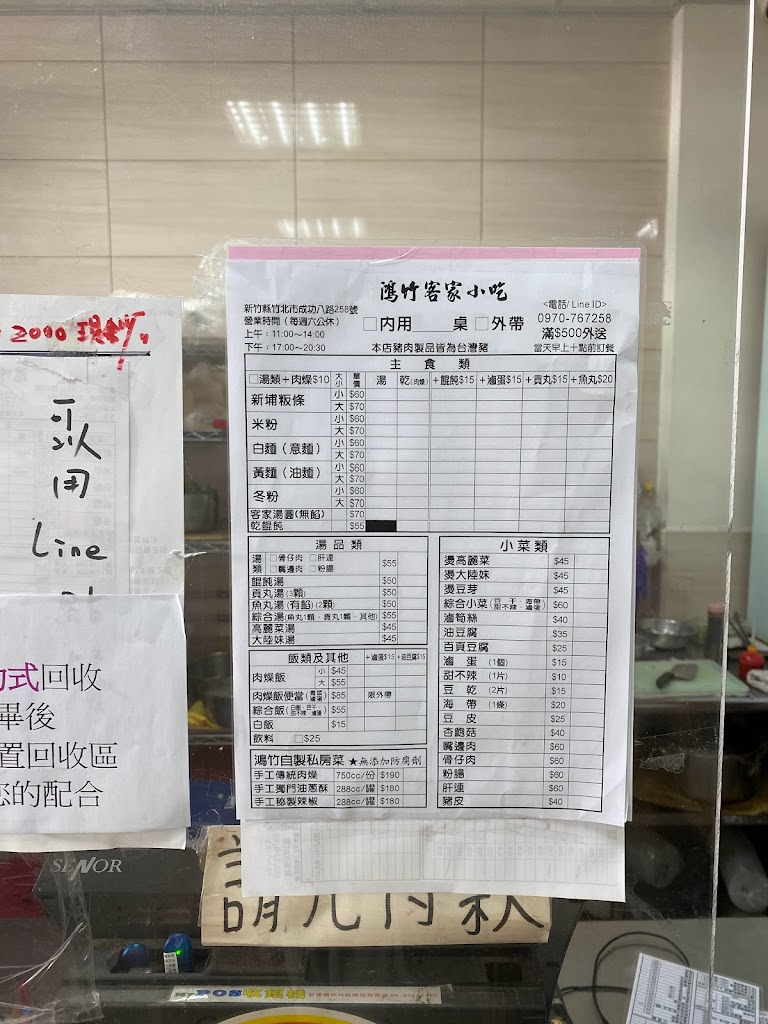 2000 現鈔.
取用
Line
式回收
畢後
置回收區
您的配合
SENOR
鴻竹客家小吃
新竹縣竹北市成功八路258號
營業時間（每週六公休）
上午：11:00～14:00
下午：17:00～20:30
□內用 桌 □外帶
本店豬肉製品皆為台灣豬
<電話/ Line ID>
0970-767258
滿$500外送
當天早上十點前訂餐
主食類
□湯類＋肉燥$10 大小 單價 湯 乾(肉燥) ＋餛飩$15 ＋滷蛋$15 ＋貢丸$15 ＋魚丸$20
新埔粄條 小 $60
大 $70
米粉 小 $60
大 $70
白麵（意麵） 小 $60
大 $70
黃麵（油麵） 小 $60
大 $70
冬粉 小 $60
大 $70
客家湯圓(無餡) $70
乾餛飩 $55
湯品類
湯類 □骨仔肉 □肝連 □嘴邊肉 □粉腸 $55
餛飩湯 $50
貢丸湯 (3顆) $50
魚丸湯 (有餡) (2顆) $50
綜合湯(魚丸1顆、貢丸1顆、其他) $55
高麗菜湯 $45
大陸妹湯 $45
飯類及其他 ＋滷蛋$15 ＋油豆腐$15
肉燥飯 小 $45
大 $55
肉燥飯便當 $85 限外帶
綜合飯 $55
白飯 $15
飲料 □$25
鴻竹自製私房菜 ★無添加防腐劑
手工傳統肉燥 750cc/份 $190
手工獨門油蔥酥 288cc/罐 $180
手工秘製辣椒 288cc/罐 $180
小菜類
燙高麗菜 $45
燙大陸妹 $45
燙豆芽 $45
綜合小菜(豆干、海帶、甜不辣、滷蛋) $60
滷筍絲 $40
油豆腐 $35
百頁豆腐 $25
滷蛋 (1個) $15
甜不辣 (1片) $10
豆乾 (2片) $15
海帶 (1條) $20
豆皮 $25
杏鮑菇 $40
嘴邊肉 $60
骨仔肉 $60
粉腸 $60
肝連 $60
豬皮 $40
請先付款
POS收銀機